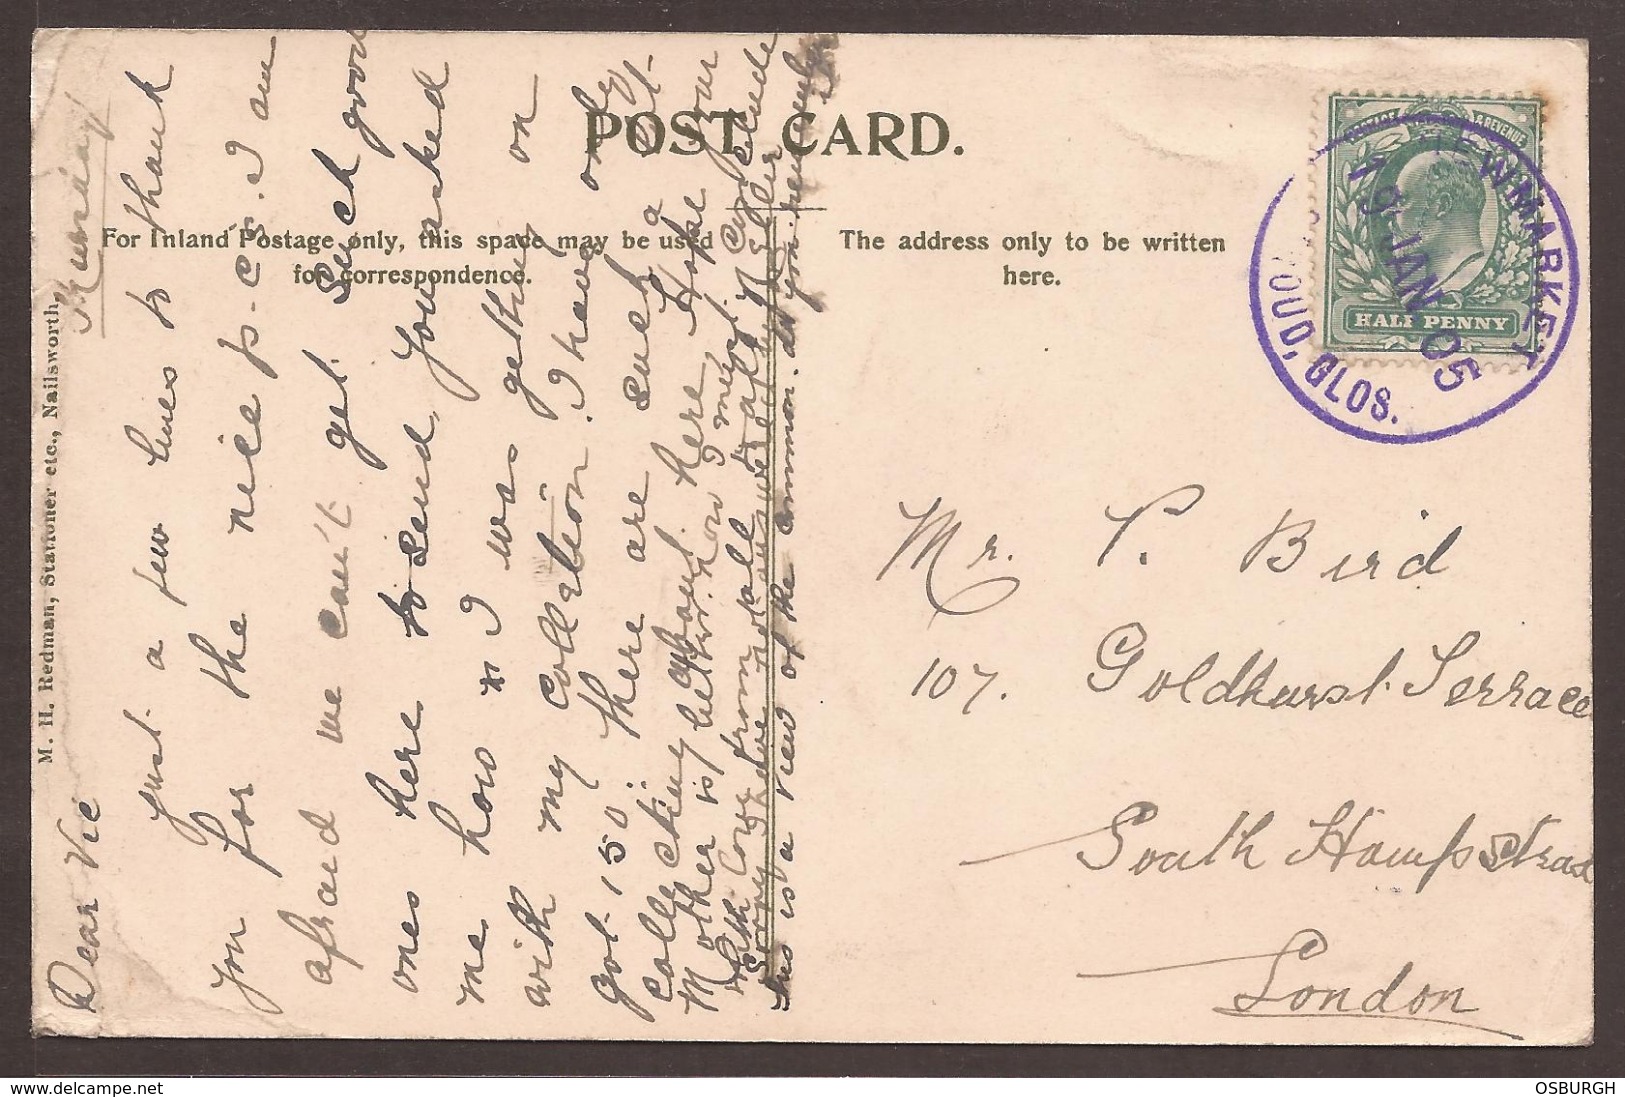 POST CARD.
For Inland Postage only, this space may be used
for correspondence.
The address only to be written
here.
M. H. Redman, Stationer etc., Nailsworth,
POSTAGE & REVENUE
HALF PENNY
NEWMARKET
19 JAN. 05
OUD, GLOS.
Dear Vic
just a few lines to thank
you for the nice p.cs. I am
afraid we can't get such good
ones here to send, you asked
me how I was getting on
with my collection. I have only
got 150. there are such a
collecting about here. Hope your
Mother is better. now I must Conclude
With Love from all to all Nellie
Sorry
this is a view of the common. do you remember it
Mr. V. Bird
107. Goldhurst Terrace
South Hampstead
London
www.delcampe.net
OSBURGH